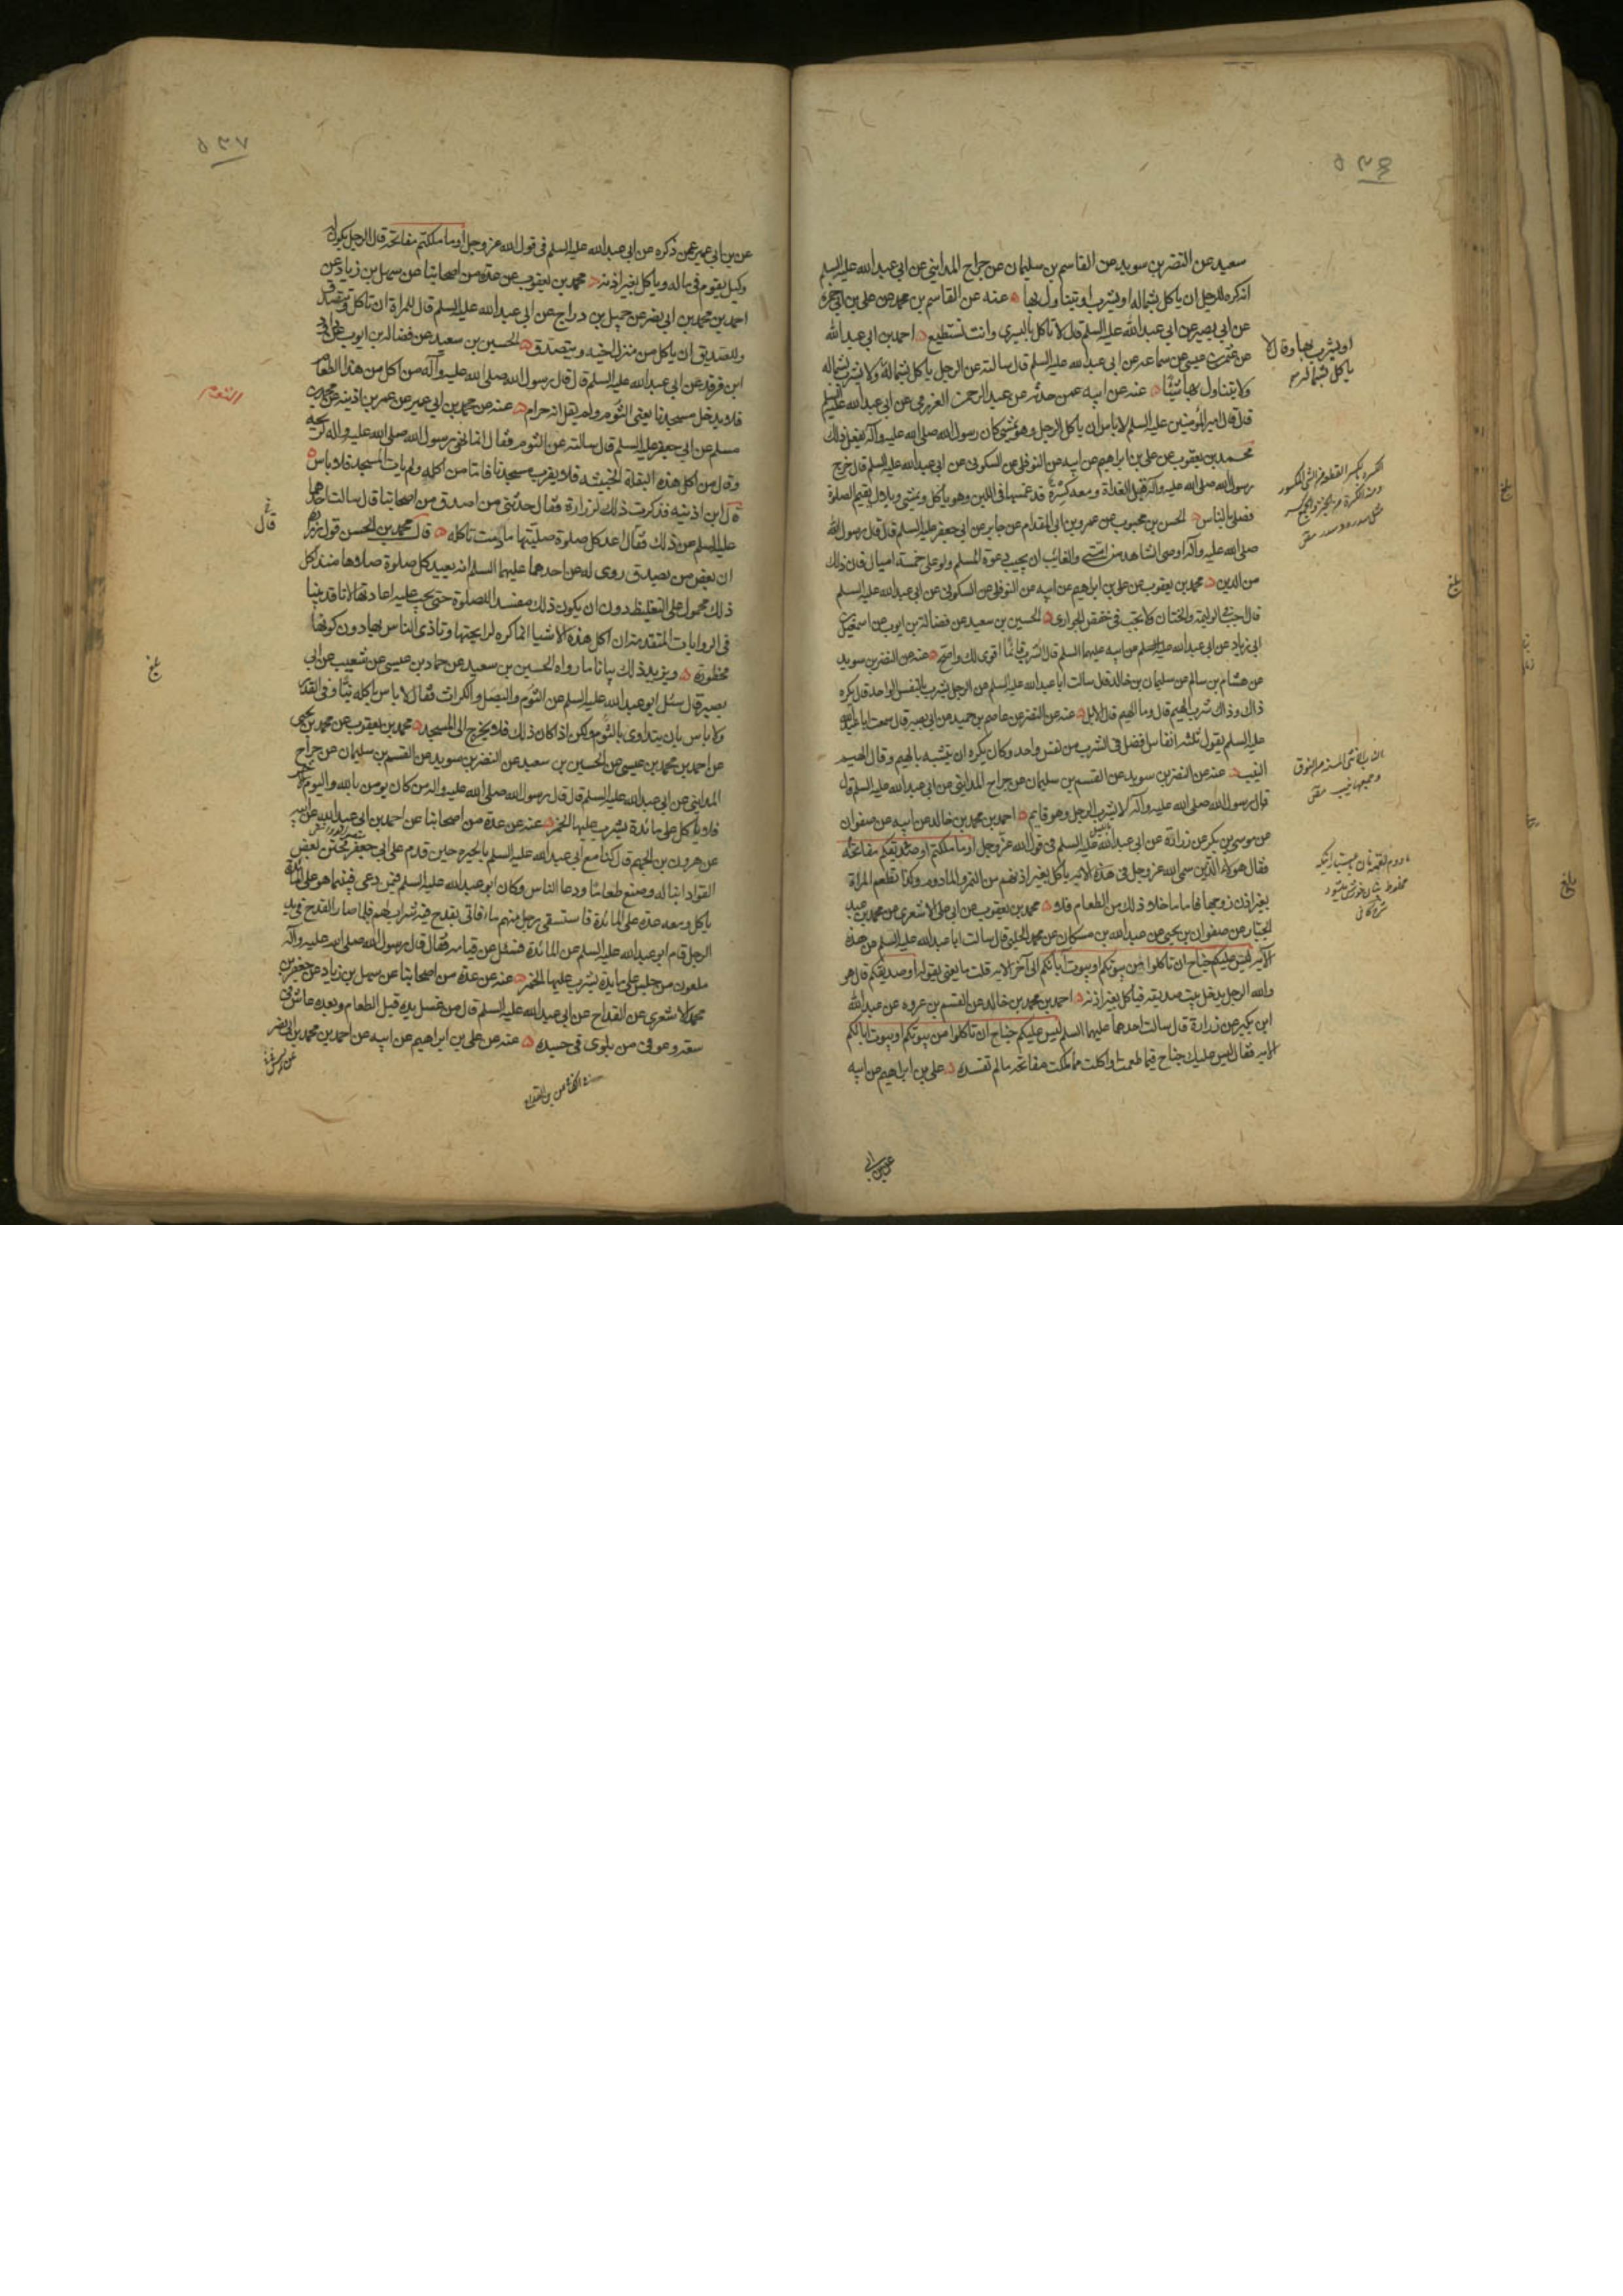 ٥٣٦
سعيد عن النضر بن سويد عن القاسم بن سليمان عن جراح المدايني عن ابي عبد الله عليه السلم
انه كره للرجل ان ياكل بشماله او يشرب او يتناول بها عنه عن القاسم بن محمد عن علي بن ابي حمزة
عن ابي بصير عن ابي عبد الله عليه السلم قال لا تاكل باليسرى وانت تستطيع احمد بن ابي عبد الله
عن عثمن بن عيسى عن سماعه عن ابي عبد الله عليه السلم قال سالته عن الرجل ياكل بشماله ولا يشرب بشماله
او يشرب بها وقال لا
ياكل بشماله
ولا يتناول بها شيئا عنه عن ابيه عمن حدثه عن عبد الرحمن العزرمي عن ابي عبد الله عليه السلم
قال قال امير المؤمنين عليه السلم لا باس ان ياكل الرجل وهو يمشي كان رسول الله صلى الله عليه وآله يفعل ذلك
محمد بن يعقوب عن علي بن ابراهيم عن ابيه عن النوفلي عن السكوني عن ابي عبد الله عليه السلم قال خرج
رسول الله صلى الله عليه وآله قبل الغداة ومعه كسرة قد غمسها في اللبن وهو ياكل ويمشي وبلال يقيم الصلوة
فصلى بالناس الحسن بن محبوب عن عمرو بن ابي المقدام عن جابر عن ابي جعفر عليه السلم قال قال رسول الله
صلى الله عليه وآله اوصي الشاهد من امتي والغايب ان يجيب دعوة المسلم ولو على خمسة اميال فان ذلك
من الدين محمد بن يعقوب عن علي بن ابراهيم عن ابيه عن النوفلي عن السكوني عن ابي عبد الله عليه السلم
قال تجب في الوليمة والختان ولا تجب في خفض الجواري الحسين بن سعيد عن فضالة بن ايوب عن اسمعيل بن
ابي زياد عن ابي عبد الله عليه السلم عن ابيه عليهما السلم قال الشرب قائما اقوى لك واصح عنه عن النضر بن سويد
عن هشام بن سالم عن سليمان بن خالد قال سالت ابا عبد الله عليه السلم عن الرجل يشرب بالنفس الواحد قال يكره
ذاك وذاك شرب الهيم قال وما الهيم قال الابل عنه عن النضر عن عاصم بن حميد عن ابي بصير قال سمعت ابا عبد الله
عليه السلم يقول ثلثة انفاس افضل في الشرب من نفس واحد وكان يكره ان يتشبه بالهيم وقال الهيم
النيب عنه عن النضر بن سويد عن القسم بن سليمان عن جراح المدايني عن ابي عبد الله عليه السلم قال
قال رسول الله صلى الله عليه وآله لا يشرب الرجل وهو قايم احمد بن محمد بن خالد عن ابيه عن صفوان
عن موسى بن بكر عن زرارة عن ابي عبد الله عليه السلم في قول الله عز وجل او ما ملكتم او صديقكم مفاتحه
فقال هولاء الذين سمى الله عز وجل في هذه الاية ياكل بغير اذنهم من التمر والمادوم وكذا تطعم المراة
بغير اذن زوجها فاما ما خلا ذلك من الطعام فلا محمد بن يعقوب عن ابي علي الاشعري عن محمد بن عبد
الجبار عن صفوان بن يحيى عن عبد الله بن مسكان عن محمد الحلبي قال سالت ابا عبد الله عليه السلم عن هذه
الآية ليس عليكم جناح ان تاكلوا من بيوتكم او بيوت آبائكم الى آخر الاية قلت ما يعني بقوله او صديقكم قال هو
والله الرجل يدخل بيت صديقه فياكل بغير اذنه احمد بن محمد بن خالد عن القسم بن عروه عن عبد الله
ابن بكير عن زرارة قال سالت احدهما عليهما السلم ليس عليكم جناح ان تاكلوا من بيوتكم او بيوت ابائكم
الاية فقال ليس عليك جناح فيما طعمت او اكلت مما ملكت مفاتحه ما لم تفسده علي بن ابراهيم عن ابيه
بلغ
بلغ
بلغ
٥٣٧
عن بن ابي عمير عمن ذكره عن ابي عبد الله عليه السلم في قول الله عز وجل او ما ملكتم مفاتحه قال الرجل يكون له
وكيل يقوم في ماله وياكل بغير اذنه محمد بن يعقوب عن عدة من اصحابنا عن سهل بن زياد عن
احمد بن محمد بن ابي نصر عن جميل بن دراج عن ابي عبد الله عليه السلم قال للمراة ان تاكل وتتصدق
وللصديق ان ياكل من منزل اخيه ويتصدق الحسين بن سعيد عن فضالة بن ايوب عن داود
ابن فرقد عن ابي عبد الله عليه السلم قال قال رسول الله صلى الله عليه وآله من اكل من هذا الطعام
فلا يدخل مسجدنا يعني الثوم ولم يقل انه حرام عنه عن محمد بن ابي عمير عن عمر بن اذينه عن محمد بن
مسلم عن ابي جعفر عليه السلم قال سالته عن الثوم فقال انما نهى رسول الله صلى الله عليه وآله لريحه
وقال من اكل هذه البقلة الخبيثه فلا يقرب مسجدنا فاما من اكله ولم يات المسجد فلا باس
قال ابن اذينه فذكرت ذلك لزرارة فقال حدثني من اصدق من اصحابنا قال سالت احدهما
عليه السلم عن ذلك فقال اعد كل صلوة صليتها ما دمت تاكله قال محمد بن الحسن قول زرارة
ان بعض من يصدق روى له عن احدهما عليهما السلم انه يعيد كل صلوة صلاها منذ اكل
ذلك محمول على التغليظ دون ان يكون ذلك مفسدا للصلوة حتى يجب عليه اعادتها لانا قد بينا
في الروايات المتقدمة ان اكل هذه الاشيا انما كره لرايحتها وتاذي الناس بها دون كونها
محظورة ويزيد ذلك بيانا ما رواه الحسين بن سعيد عن حماد بن عيسى عن شعيب عن ابي
بصير قال سئل ابو عبد الله عليه السلم عن الثوم والبصل والكراث فقال لا باس ياكله نيا وفي القدر
ولا باس بان يتداوى بالثوم ولكن اذا كان ذلك فلا يخرج الى المسجد محمد بن يعقوب عن محمد بن يحيى
عن احمد بن محمد بن عيسى عن الحسين بن سعيد عن النضر بن سويد عن القسم بن سليمان عن جراح
المدايني عن ابي عبد الله عليه السلم قال قال رسول الله صلى الله عليه وآله من كان يومن بالله واليوم الآخر
فلا ياكل على مائدة يشرب عليها الخمر عنه عن عدة من اصحابنا عن احمد بن ابي عبد الله عن ابيه
عن هرون بن الجهم قال كنا مع ابي عبد الله عليه السلم بالحيره حين قدم على ابي جعفر فختن بعض
القواد ابنا له وصنع طعاما ودعا الناس وكان ابو عبد الله عليه السلم فيمن دعي فبينما هو على المائدة
ياكل ومعه عدة على المائدة فاستسقى رجل منهم ماء فاتي بقدح فيه شراب لهم فلما صار القدح في يد
الرجل قام ابو عبد الله عليه السلم عن المائدة فسئل عن قيامه فقال قال رسول الله صلى الله عليه وآله
ملعون من جلس على مايدة يشرب عليها الخمر عنه عن عدة من اصحابنا عن سهل بن زياد عن جعفر بن
محمد الاشعري عن القداح عن ابي عبد الله عليه السلم قال من غسل يده قبل الطعام وبعده عاش في
سعة وعوفي من بلوى في جسده عنه عن علي بن ابراهيم عن ابيه عن احمد بن محمد بن ابي نصر
قال
بلغ